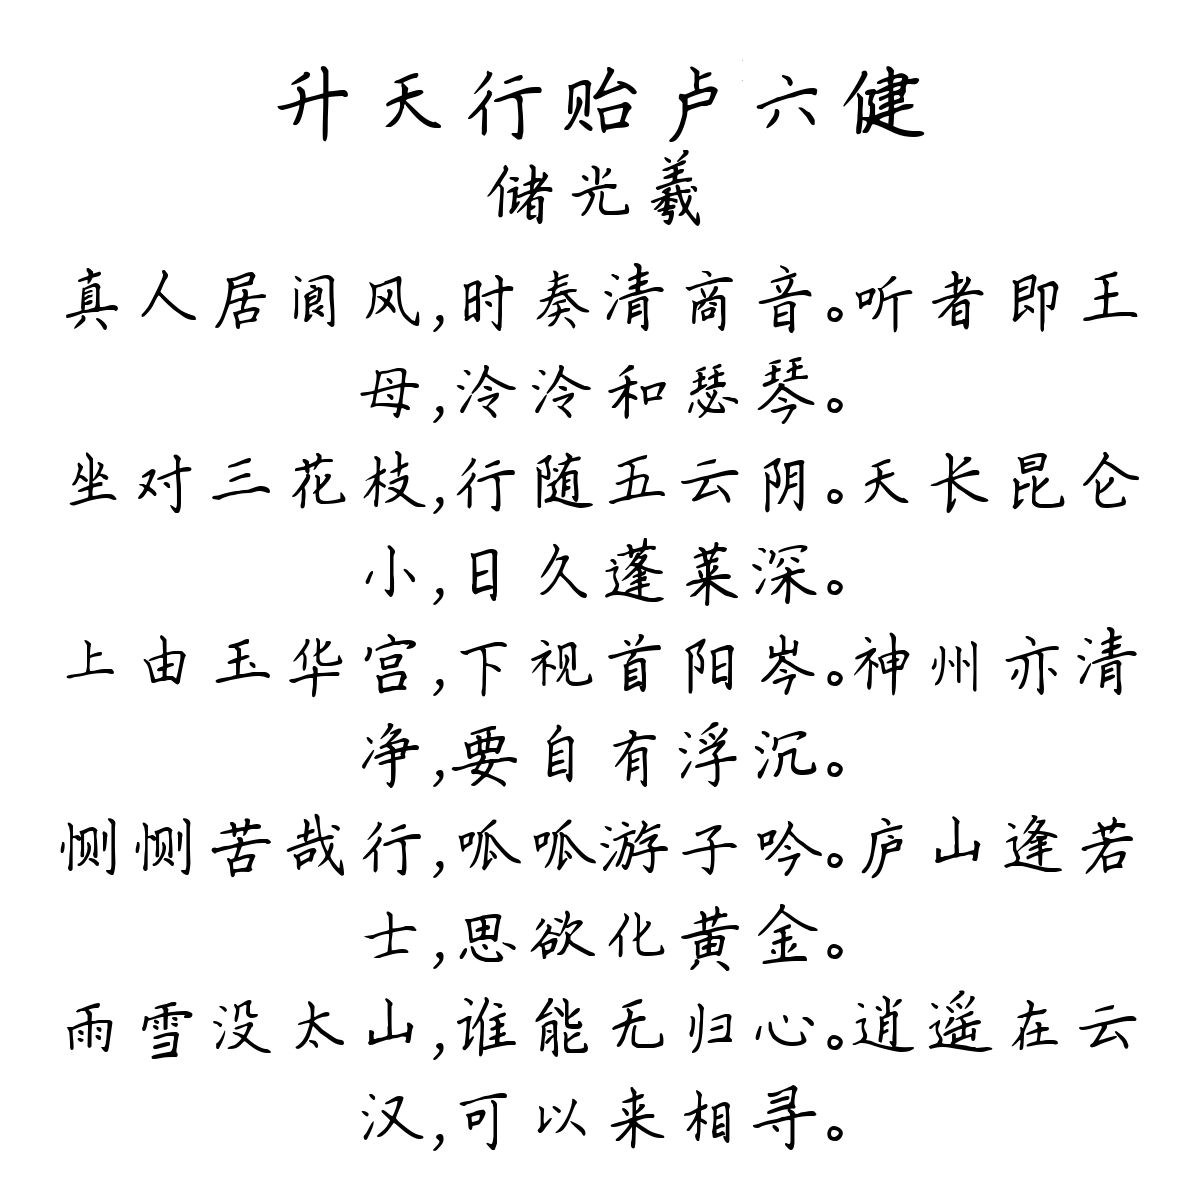 升天行贻卢六健
储光羲
真人居阆风,时奏清商音。听者即王
母,泠泠和瑟琴。
坐对三花枝,行随五云阴。天长昆仑
小,日久蓬莱深。
上由玉华宫,下视首阳岑。神州亦清
净,要自有浮沉。
恻恻苦哉行,呱呱游子吟。庐山逢若
士,思欲化黄金。
雨雪没太山,谁能无归心。逍遥在云
汉,可以来相寻。